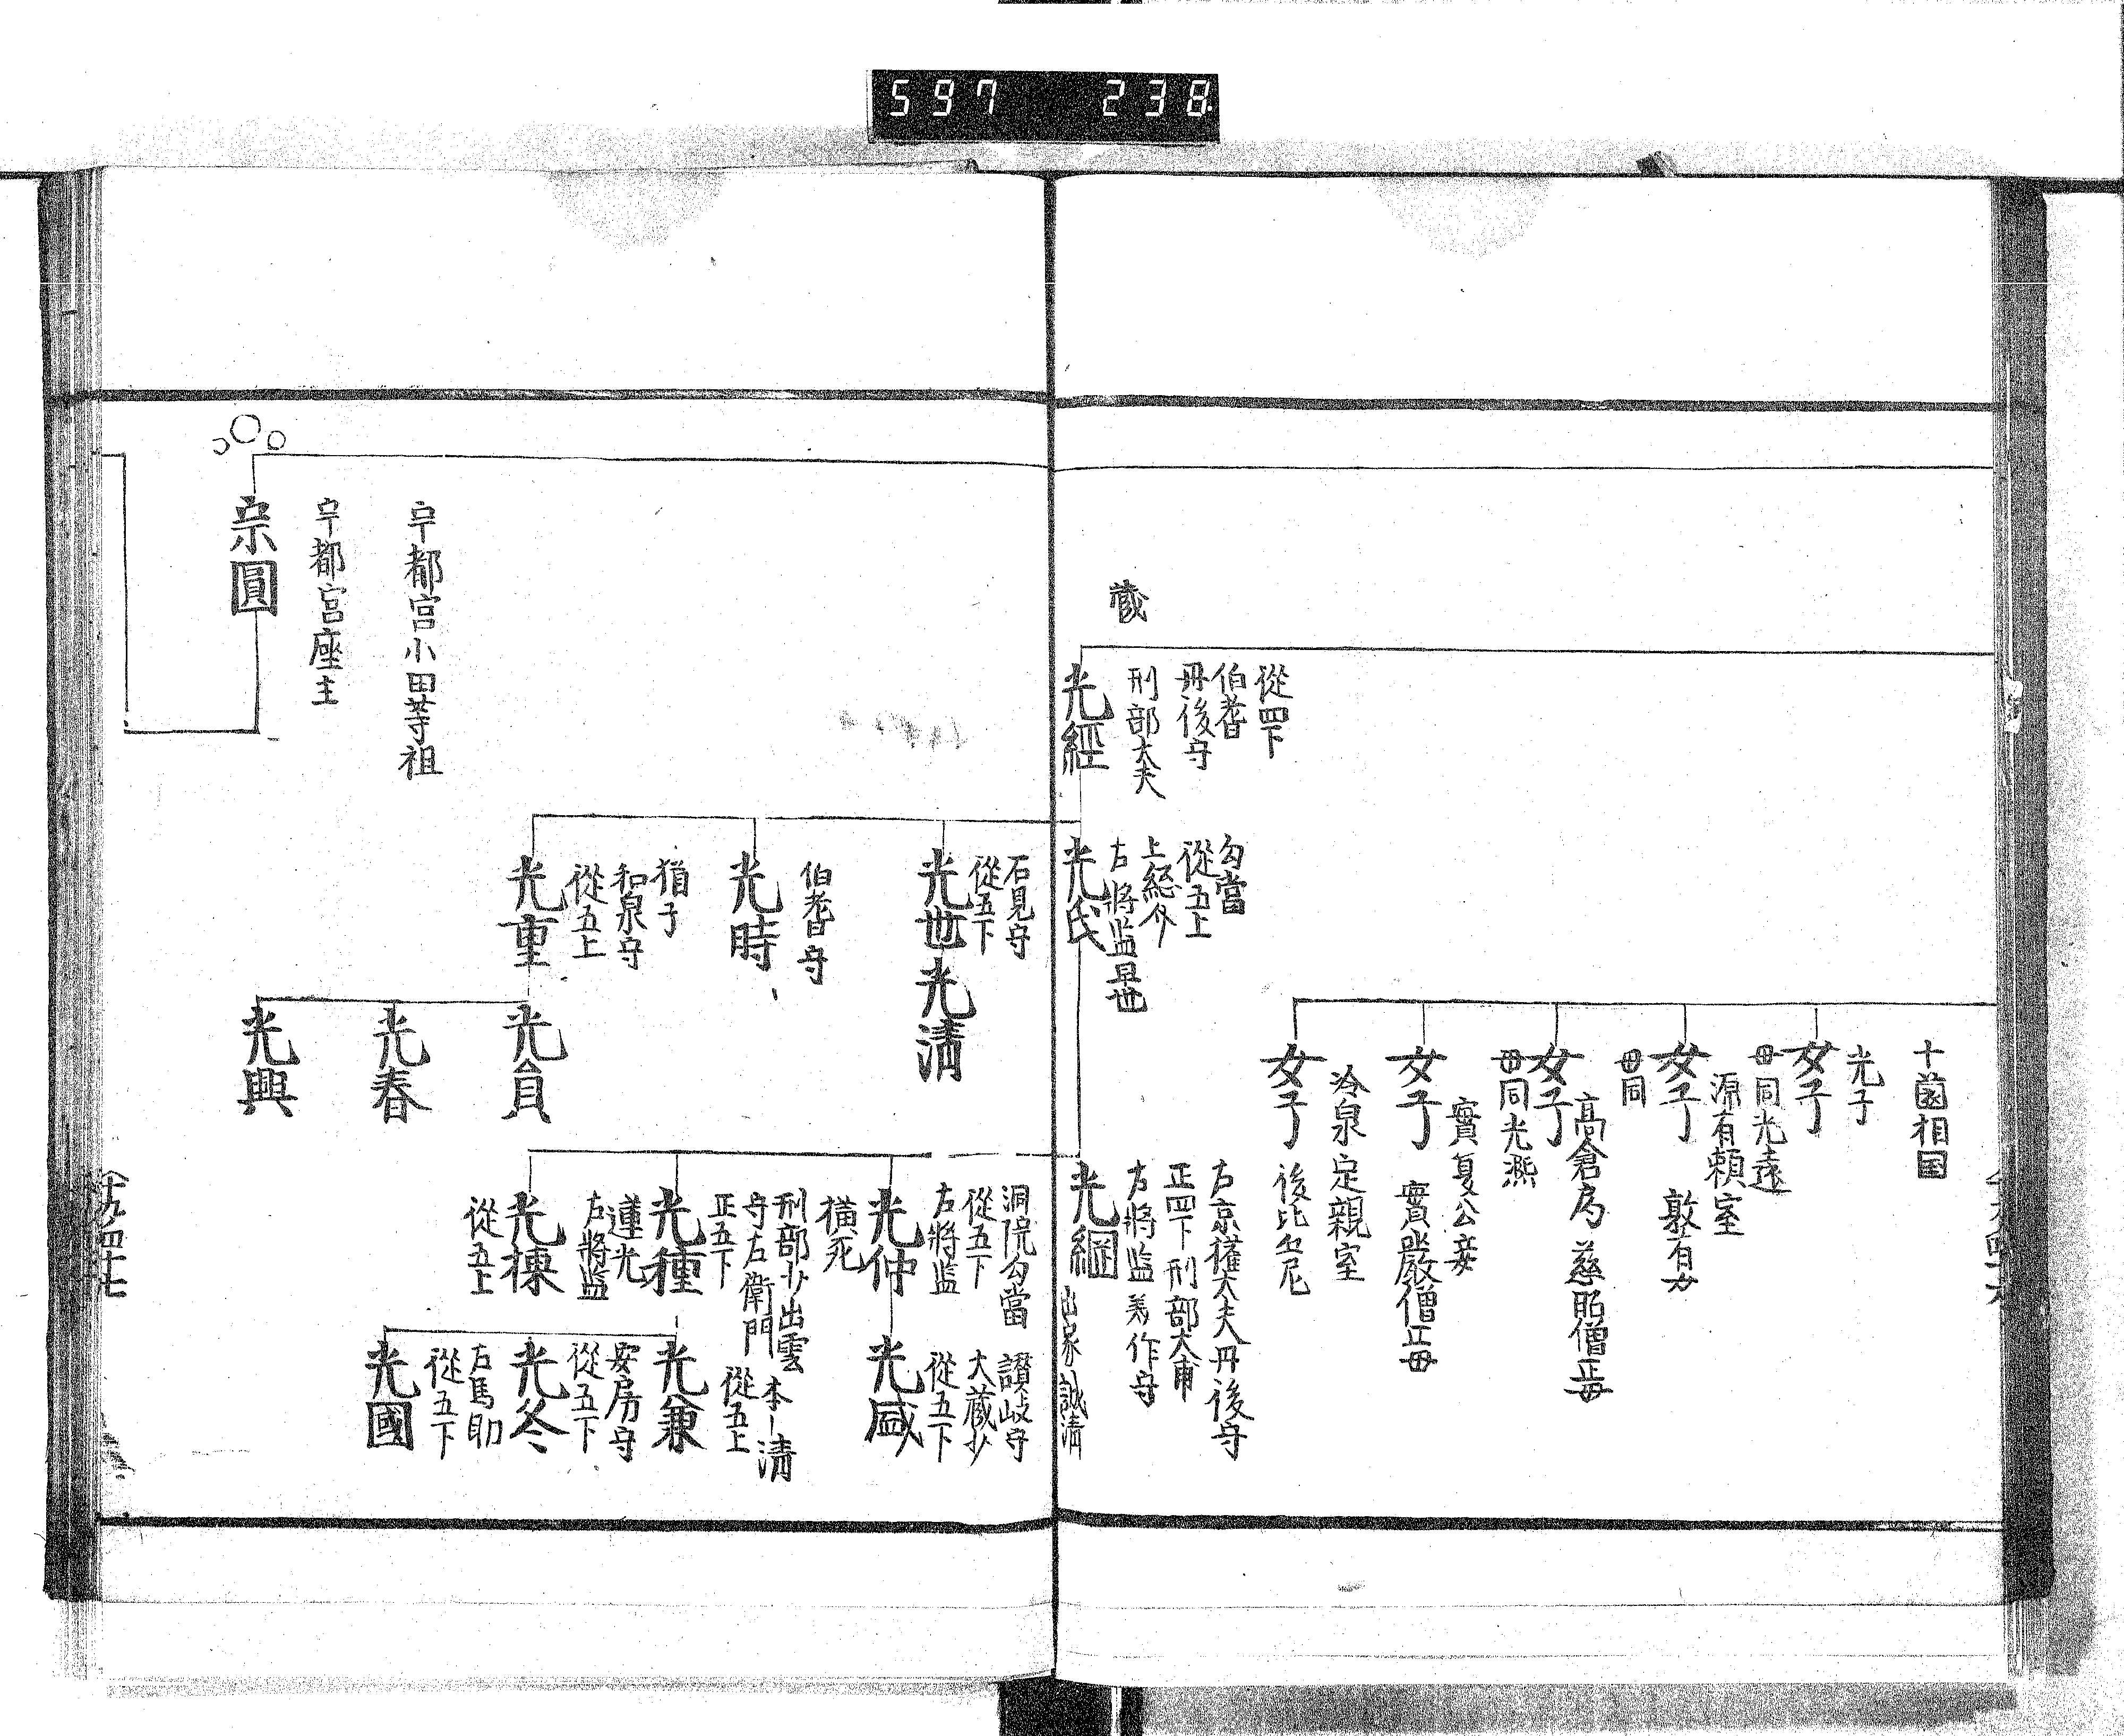 597 238
十箇相国
光子
女子
母同光遠
源有頼室
女子 敦有母
母同
高倉房 慈昭僧正母
女子
母同光熙
實夏公妾
女子 實嚴僧正母
冷泉定親室
女子 後比丘尼
從四下
伯耆
丹後守
刑部大夫
光經
藏
勾當
從五上
上総介
右将监早世
光氏
右京権大夫丹後守
正四下刑部大甫
左将监美作守
光綱 出家誠清
石見守
從五下
光世
光清
伯耆守
光時
猶子
和泉守
從五上
光重
光員
光春
光興
洞院勾當
從五下
左将监
光仲
横死
讃岐守
大蔵少
從五下
光盛
刑部少出雲
守左衛門
正五下
光種
蓮光
左将监
光棟
從五上
本-清
從五上
光兼
安房守
從五下
光冬
右馬助
從五下
光國
宇都宮小田等祖
宇都宮座主
宗圓